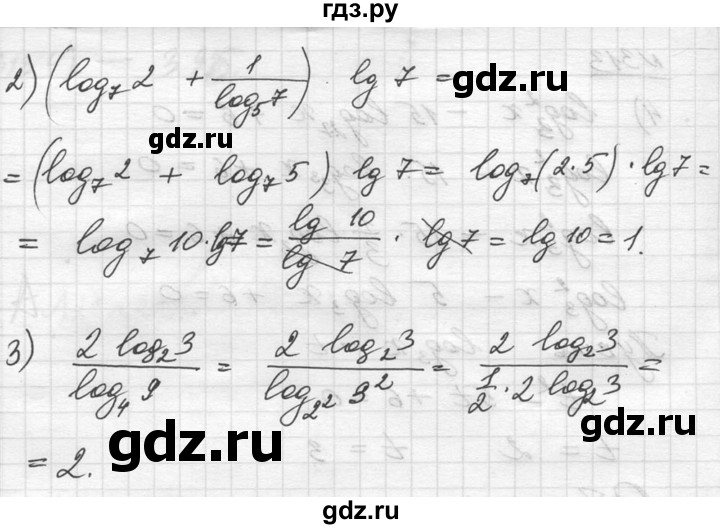 гдз.ру
2) (log₇ 2 + 1/log₅ 7) · lg 7 =
gdz.ru
gdz.ru
= (log₇ 2 + log₇ 5) lg 7 = log₇ (2·5) · lg 7 =
= log₇ 10 · lg 7 = lg 10/lg 7 · lg 7 = lg 10 = 1.
gdz.ru
3) 2 log₂ 3/log₄ 9 = 2 log₂ 3/log₂² 3² = 2 log₂ 3/(1/2 · 2 log₂ 3) =
gdz.ru
gdz.ru
= 2.
gdz.ru
gdz.ru